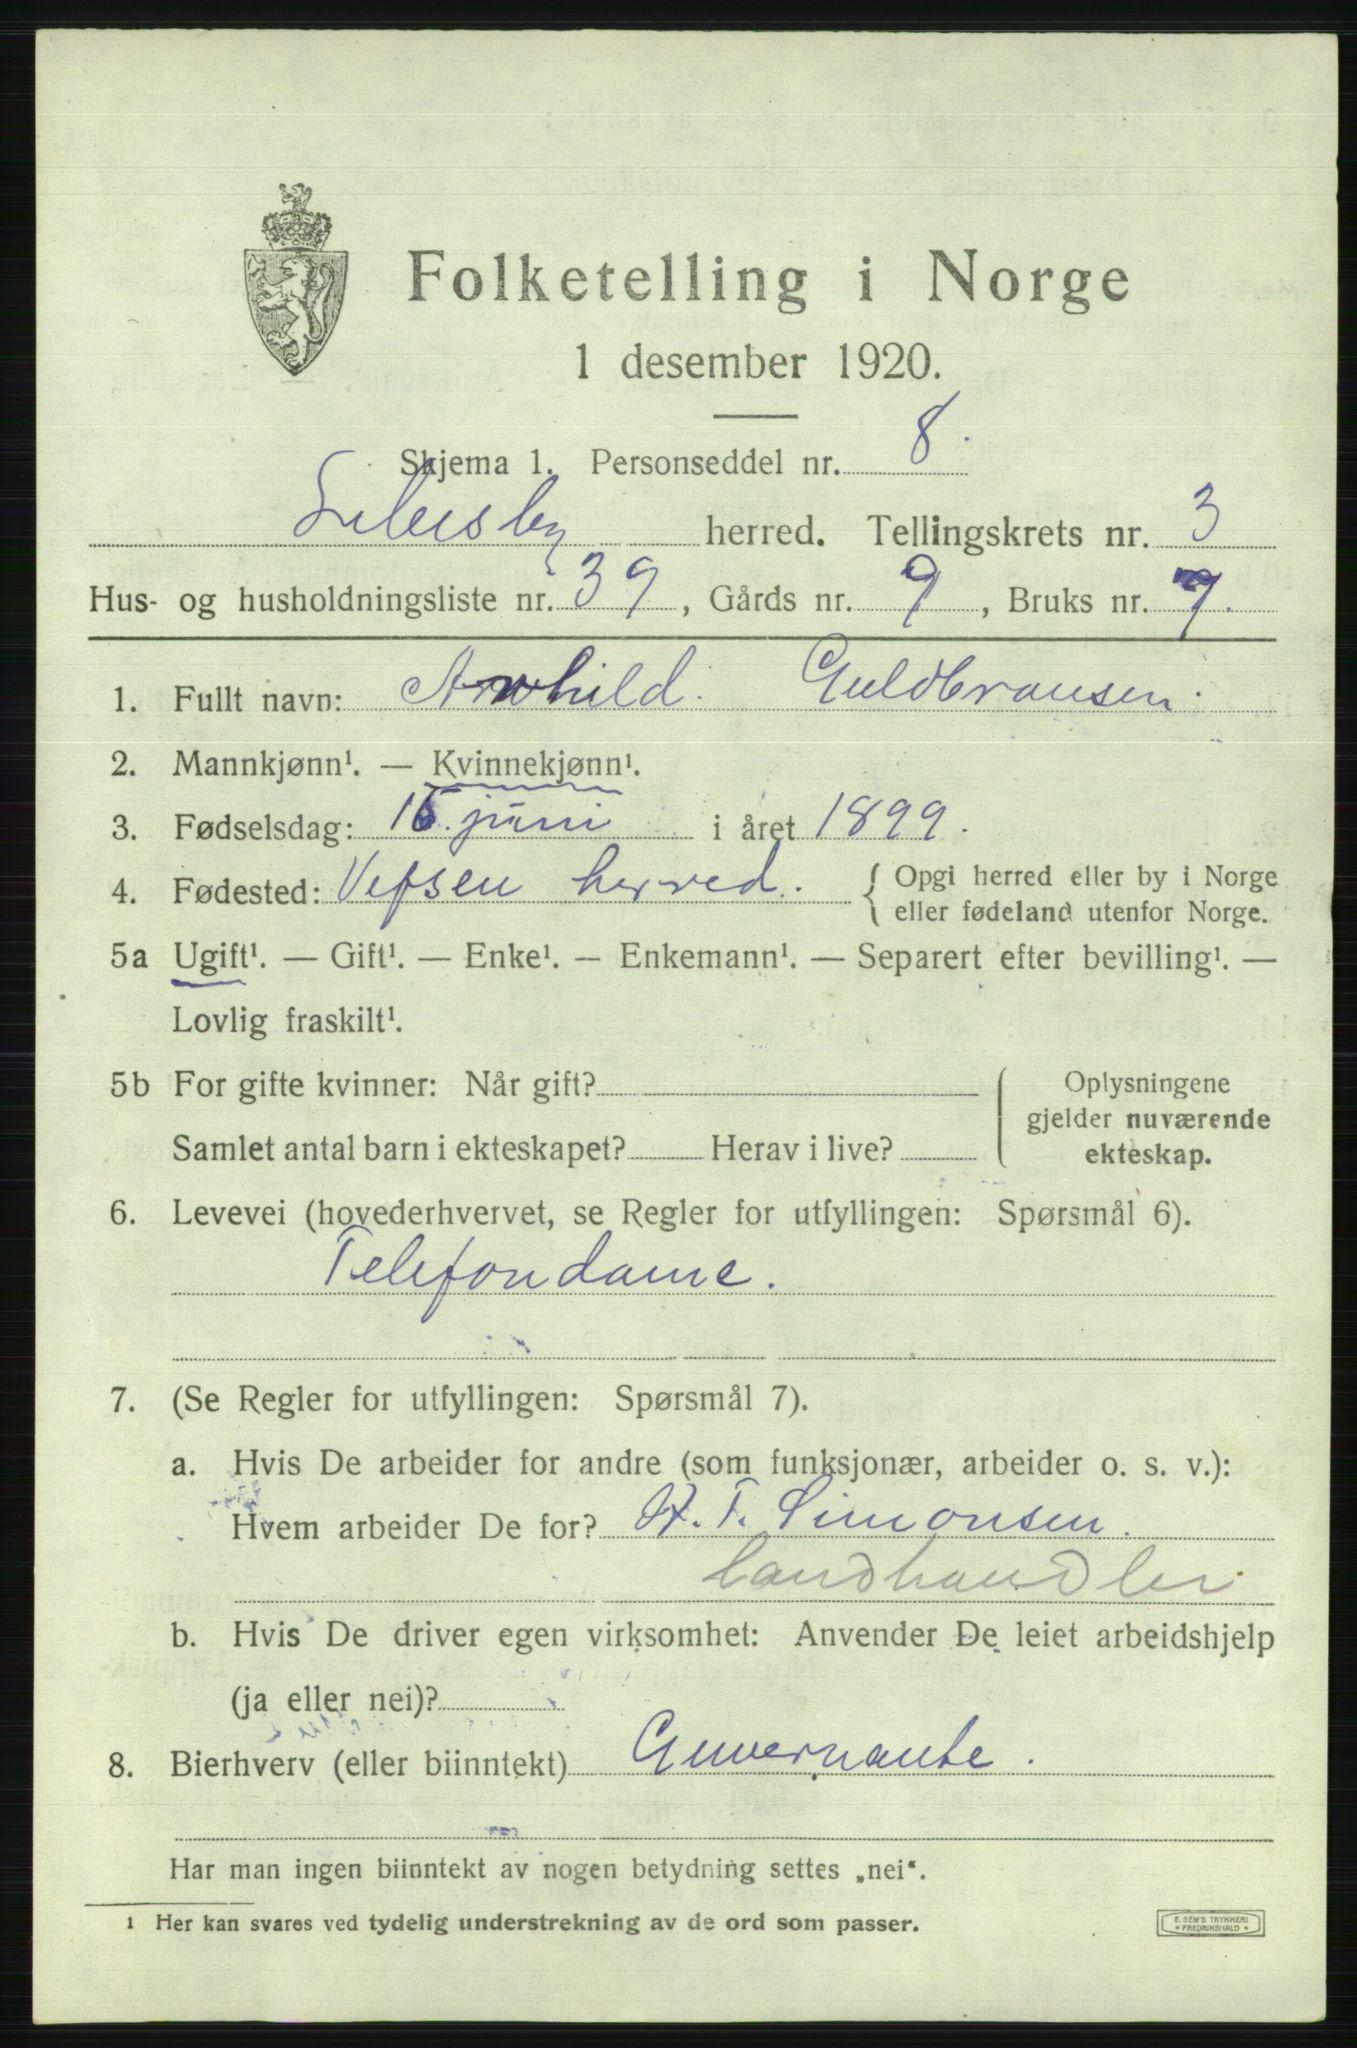 Folketelling i Norge
1 desember 1920.
Skjema 1. Personseddel nr. 8.
herred. Tellingskrets nr. 3
Hus- og husholdningsliste nr. 39, Gårds nr. 9, Bruks nr. 7.
1. Fullt navn: Guldbransen.
2. Mannkjønn¹. — Kvinnekjønn¹.
3. Fødselsdag: juni i året 1899.
4. Fødested: Vefsen herred. { Opgi herred eller by i Norge
eller fødeland utenfor Norge.
5a Ugift¹. — Gift¹. — Enke¹. — Enkemann¹. — Separert efter bevilling¹. —
Lovlig fraskilt¹.
5b For gifte kvinner: Når gift? ( Oplysningene
gjelder nuværende
Samlet antal barn i ekteskapet? Herav i live? ekteskap.
6. Levevei (hovederhvervet, se Regler for utfyllingen: Spørsmål 6).
Telefondame.
7. (Se Regler for utfyllingen: Spørsmål 7).
a. Hvis De arbeider for andre (som funksjonær, arbeider o. s. v.):
Hvem arbeider De for? H. T. Simonsen.
Landhandler
b. Hvis De driver egen virksomhet: Anvender De leiet arbeidshjelp
(ja eller nei)?
8. Bierhverv (eller biinntekt) Guvernante.
Har man ingen biinntekt av nogen betydning settes „nei“.
1 Her kan svares ved tydelig understrekning av de ord som passer.
E. SEM'S TRYKKERI
* FREDRIKSHALD *